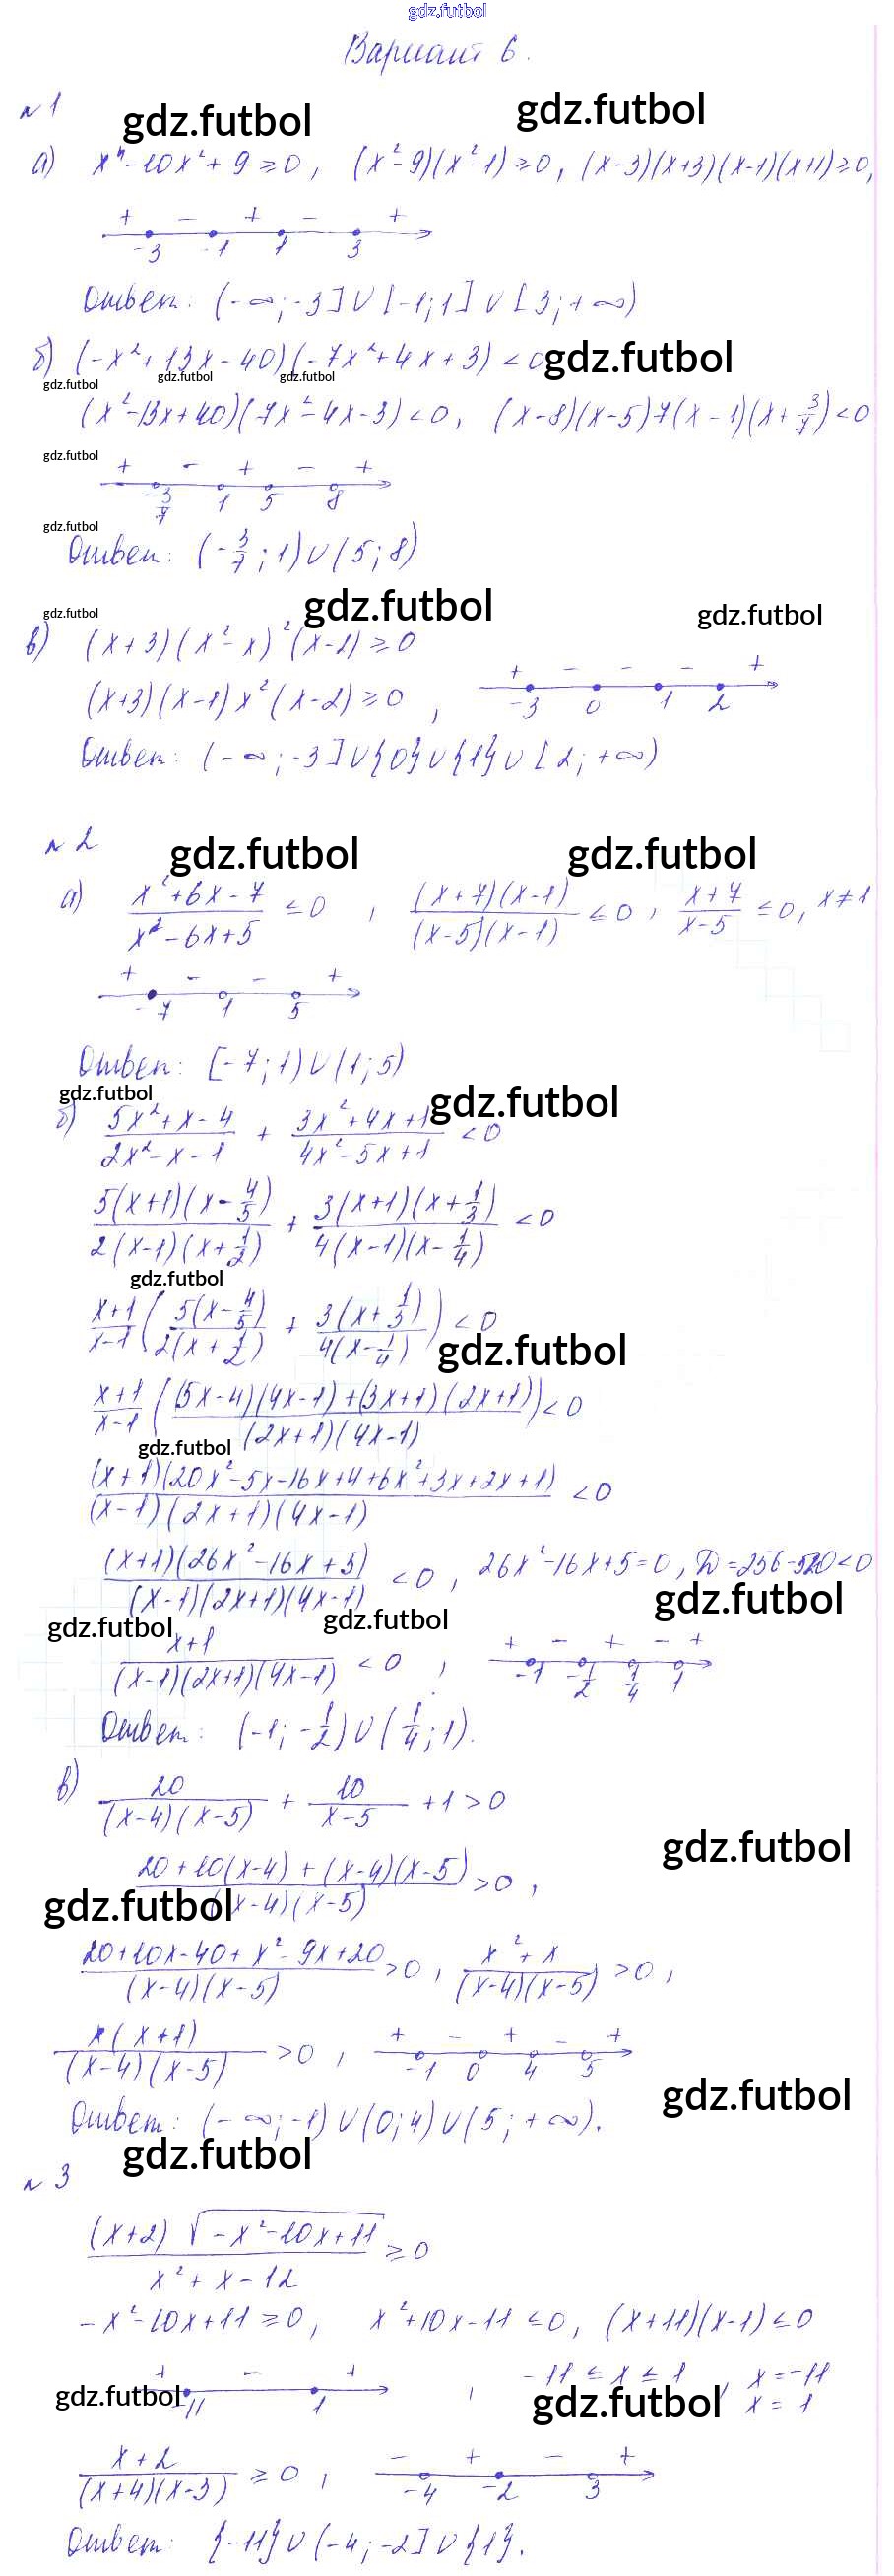 gdz.futbol
Вариант 6.
№1
gdz.futbol gdz.futbol
а) x⁴-10x²+9≥0, (x²-9)(x²-1)≥0, (x-3)(x+3)(x-1)(x+1)≥0,
+ - + - +
-3 -1 1 3
Ответ: (-∞;-3]∪[-1;1]∪[3;+∞)
б) (-x²+13x-40)(-7x²+4x+3)<0 gdz.futbol
gdz.futbol gdz.futbol gdz.futbol
(x²-13x+40)(7x²-4x-3)<0, (x-8)(x-5)7(x-1)(x+3/7)<0
gdz.futbol
+ - + - +
-3/7 1 5 8
gdz.futbol
Ответ: (-3/7;1)∪(5;8)
gdz.futbol gdz.futbol gdz.futbol
в) (x+3)(x²-x)²(x-2)≥0
(x+3)(x-1)x²(x-2)≥0,
+ - - - +
-3 0 1 2
Ответ: (-∞;-3]∪{0}∪{1}∪[2;+∞)
№2
gdz.futbol gdz.futbol
а) (x²+6x-7)/(x²-6x+5)≤0, ((x+7)(x-1))/((x-5)(x-1))≤0, (x+7)/(x-5)≤0, x≠1
+ - - +
-7 1 5
Ответ: [-7;1)∪(1;5)
gdz.futbol gdz.futbol
б) (5x²+x-4)/(2x²-x-1) + (3x²+4x+1)/(4x²-5x+1) <0
(5(x+1)(x-4/5))/(2(x-1)(x+1/2)) + (3(x+1)(x+1/3))/(4(x-1)(x-1/4)) <0
gdz.futbol
(x+1)/(x-1) ((5(x-4/5))/(2(x+1/2)) + (3(x+1/3))/(4(x-1/4))) <0
gdz.futbol
(x+1)/(x-1) (((5x-4)(4x-1)+(3x+1)(2x+1))/((2x+1)(4x-1)))<0
gdz.futbol
((x+1)(20x²-5x-16x+4+6x²+3x+2x+1))/((x-1)(2x+1)(4x-1)) <0
((x+1)(26x²-16x+5))/((x-1)(2x+1)(4x-1)) <0, 26x²-16x+5=0, D=256-520<0
gdz.futbol
gdz.futbol gdz.futbol
(x+1)/((x-1)(2x+1)(4x-1)) <0,
+ - + - +
-1 -1/2 1/4 1
Ответ: (-1;-1/2)∪(1/4;1).
в) 20/((x-4)(x-5)) + 10/(x-5) +1>0
gdz.futbol
(20+10(x-4)+(x-4)(x-5))/((x-4)(x-5)) >0,
gdz.futbol
(20+10x-40+x²-9x+20)/((x-4)(x-5)) >0, (x²+x)/((x-4)(x-5)) >0,
(x(x+1))/((x-4)(x-5)) >0,
+ - + - +
-1 0 4 5
gdz.futbol
Ответ: (-∞;-1)∪(0;4)∪(5;+∞).
gdz.futbol
№3
((x+2)√(-x²-10x+11))/(x²+x-12) ≥0
-x²-10x+11≥0, x²+10x-11≤0, (x+11)(x-1)≤0
+ - +
-11 1
, -11≤x≤1, x=-11
x=1
gdz.futbol gdz.futbol
(x+2)/((x+4)(x-3)) ≥0,
- + - +
-4 -2 3
Ответ: {-11}∪(-4;-2]∪{1}.